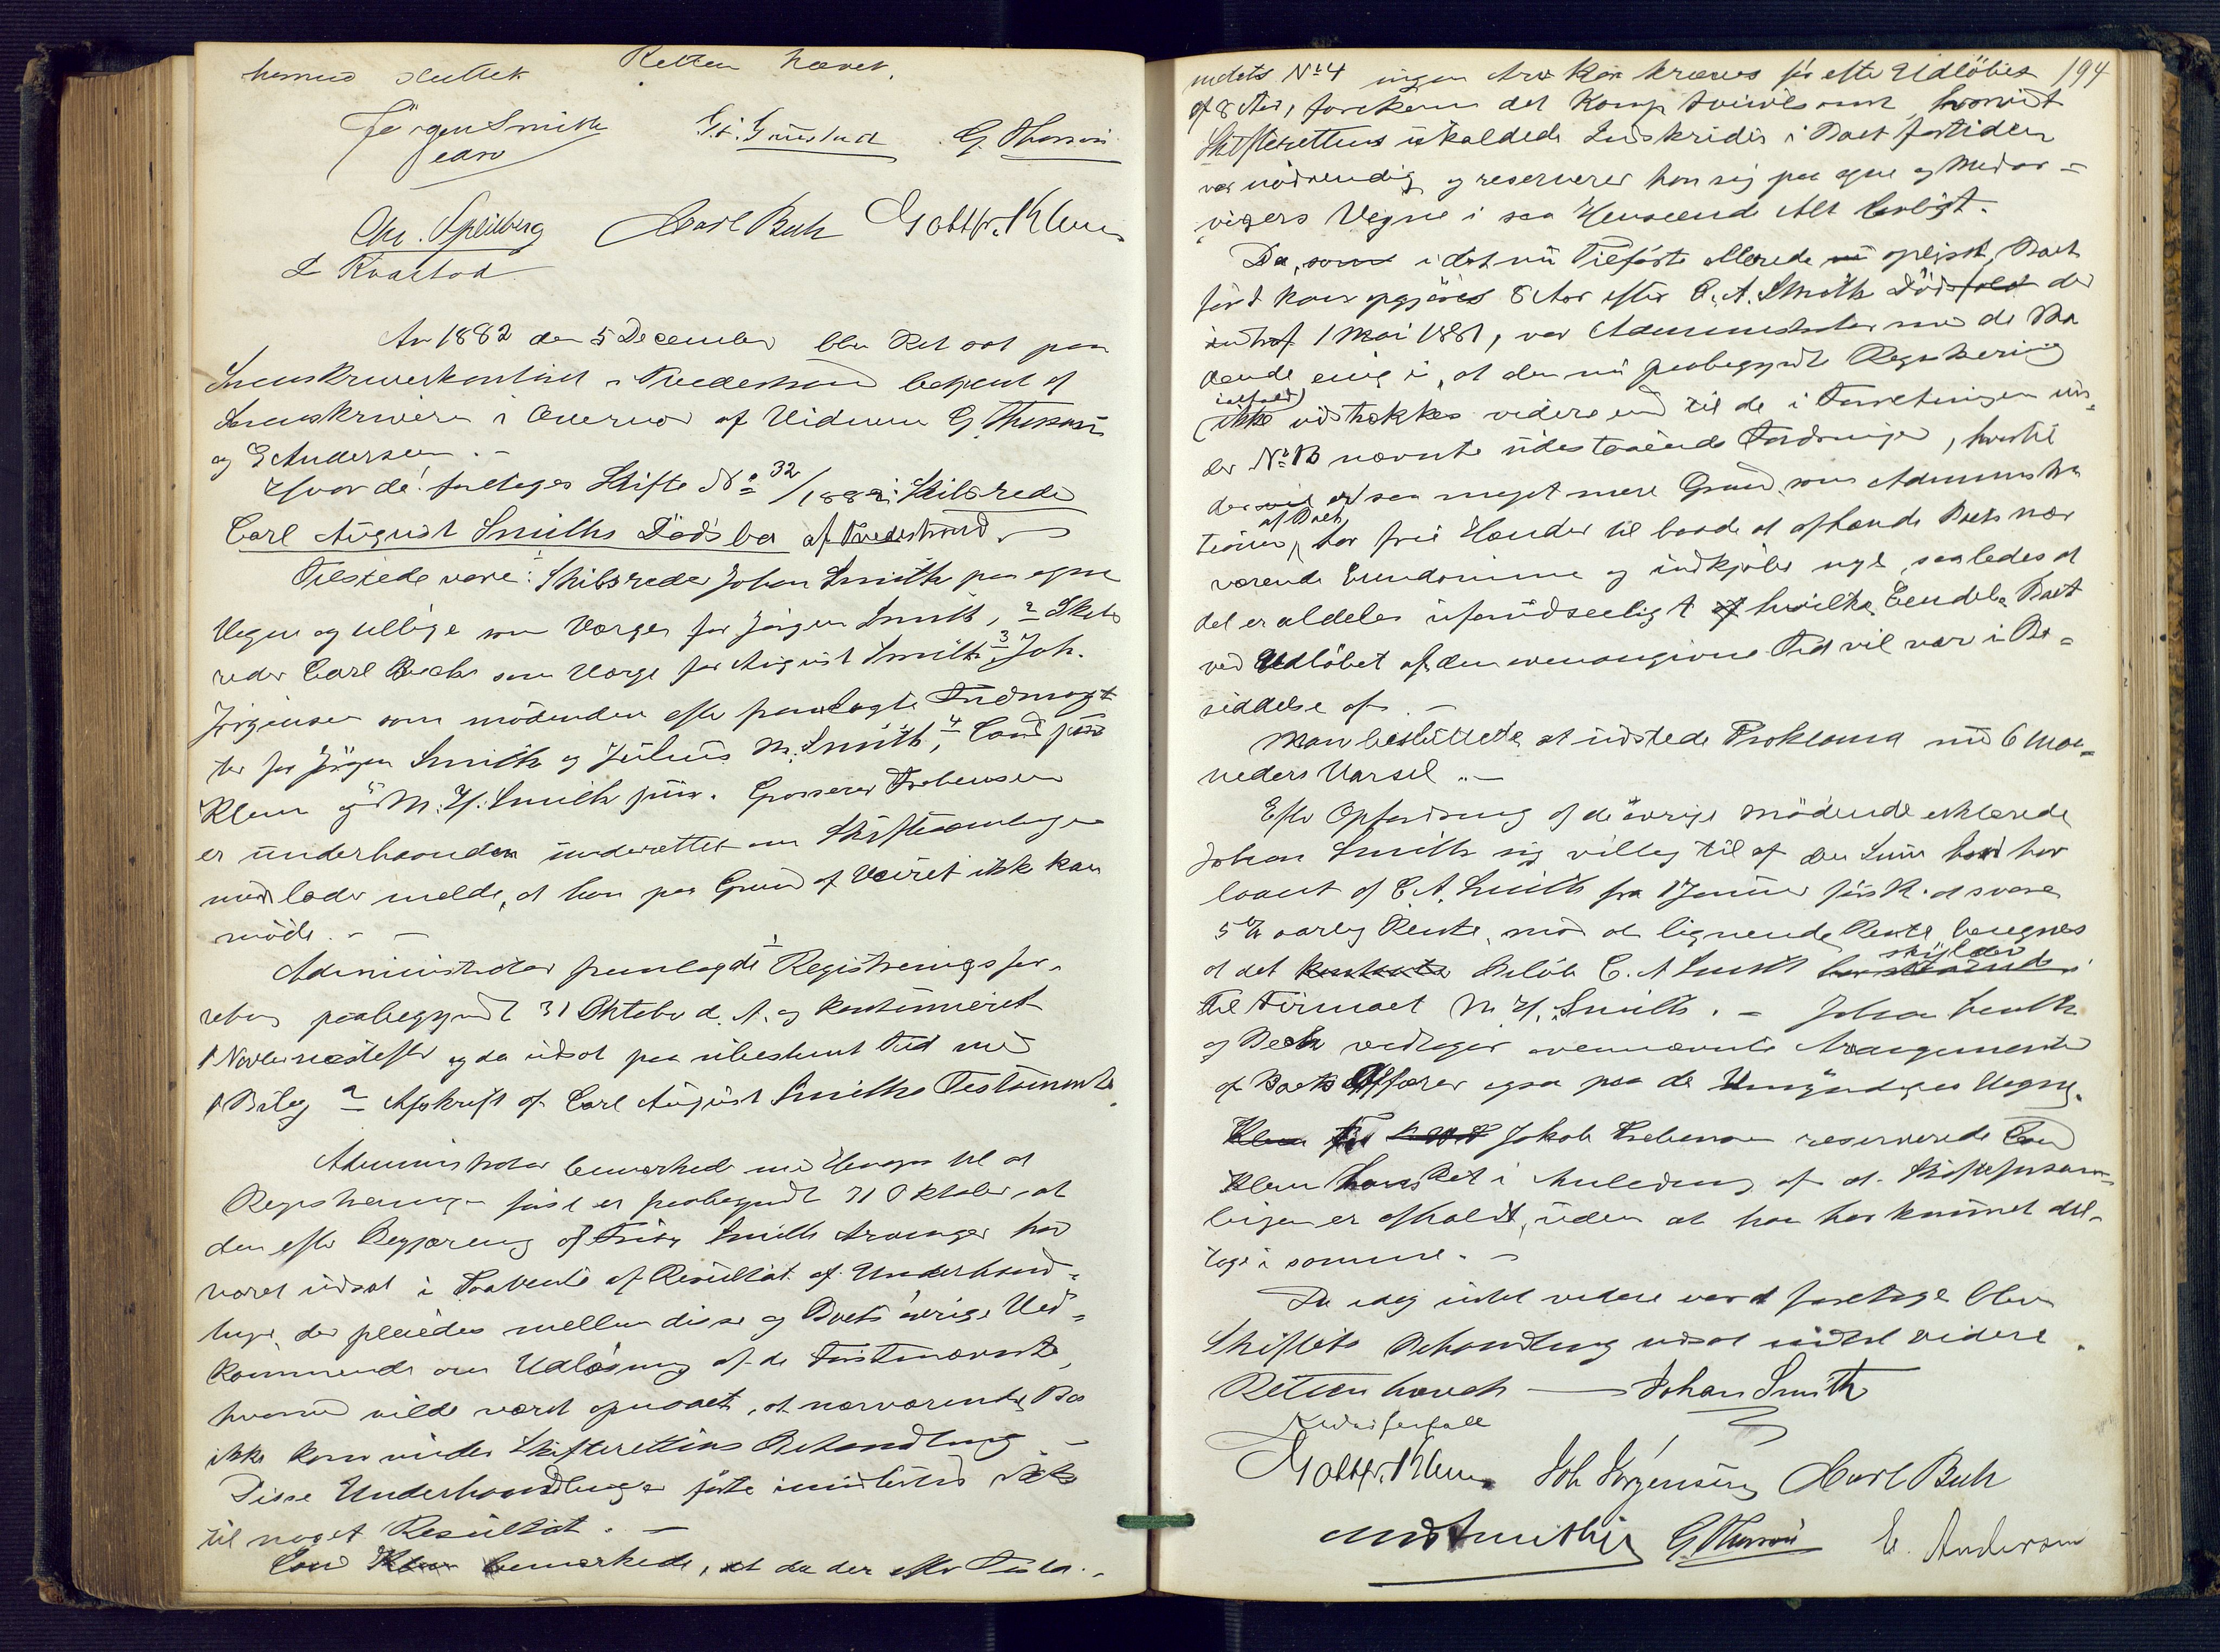 hermed sluttet Retten hævet.
Jörgen Smith
jeav
G. Thomson
Chr. Spilberg Carl Bech Gottfr. Klem
L Kvastad
Aar 1882 den 5 December blev Ret sat paa
Sorenskriverkontoret i Tvedestrand betjent af
Sorenskriveren i Overvær af Vidnerne G. Thomson
og E Andersen.-
Hvor da: foretoges Skifte No 32/1882 i Skibsreder
Carl August Smiths Dödsbo af Tvedestrand.
Tilstede vare: Skibsreder Johan Smith paa egne
Vegne og tillige som Værge for Jörgen Smith, 2 Skibs
reder Carl Bech som Værge for August Smith, 3 Joh.
Jörgensen som mödende efter fremlagte Fuldmagt
ter for Jörgen Smith og Julius M. Smith, 4 Cand jur
Klem og 5 M. H. Smith jun. Grosserer Trebensen
er underhaanden underrettet om Skiftesamlingen
men lader melde, at han paa Grund af Veiret ikke kan
möde. - -
Administrator fremlagde 1 Registreringsfor-
retning paabegyndt 31 Oktober d. A. og kontinueret
1 Novbr næstefter og da udsat paa ubestemt Tid med
1 Bilag 2 Afskrift af Carl August Smiths Testamente.
Administrator bemærkede med Hensyn til at
Registreringen först er paabegyndt 31 Oktober, at
den efter Begjæring af Smith Arvinger har
været udsat i Paavente af Resultat af Underhand-
linger, der pleiedes mellem disse og Boets övrige Ved-
kommende om Udlösning af de Förstnævnte,
hvorved vilde været opnaaet, at nærværende Bo
ikke kom under Skifterettens Behandling -
Disse Underhandlinger förte imidlertid ikke
til noget Resultat. -
Cand Klem bemærkede, at da der efter Testa-
mdets No 4 ingen Arv kan kræves för efter Udlöbet 194
af 8 Aar, forekom det Komp tvivlsomt, hvorvidt
Skifterettens ukaldede Indskriden i Boet fortiden
var nödvendig og reserverer han sig paa egne og Medar-
vingers Vegne i saa Henseende Alt lovligt.
Da, som i det nu Tilförte allerede nu oplyst, Boet
först kan opgjöres 8 Aar efter C. A. Smith Dödsfald der
indtraf 1 Mai 1881, var Administrator med de Mö
dende enig i, at den nu paabegyndte Registrering
ialfald
ikke udstrækkes videre end til de i Forretningen un-
der No 13 nævnte udestaaende Fordringer, hvortil
der er saa meget mere Grund, som Administra
af Boet
tionen, har frie Hænder til baade at afhænde Boets nær
værende Eiendomme og indkjöbe nye, saaledes at
det er aldeles uforudseeligt af hvilke Eiendele Boet
ved Udlöbet af den ovenangivne Tid vil være i Be-
siddelse af. -
Man besluttede at udstede Proklama med 6 Maa-
neders Varsel. -
Efter Opfordring af de övrige Mödende erklærede
Johan Smith sig villig til af den Sum han har
laant af C. A. Smith fra 1 Januar förstk. at svare
5 % aarlig Rente, mod at lignende Rente beregnes
skylder
af det Belöb C. A Smith
til Firmaet M. H. Smith. - Johan Smith
og Bech vedtager ovennævnte Arrangementer
af Boets Affærer ogsaa paa de Umyndiges Vegne.
Jakob Trebensen reserverede Cand
Klem hans Ret i Anledning af at Skiftesam-
lingen er afholdt, uden at han har kunnet del-
tage i samme. -
Da idag intet videre var at foretage blev
Skiftets Behandling udsat indtil videre.
Retten hævet - Johan Smith
Gottfr. Klem Joh Jörgensen Carl Bech
MHSmithjr G. Thomson E. Andersen